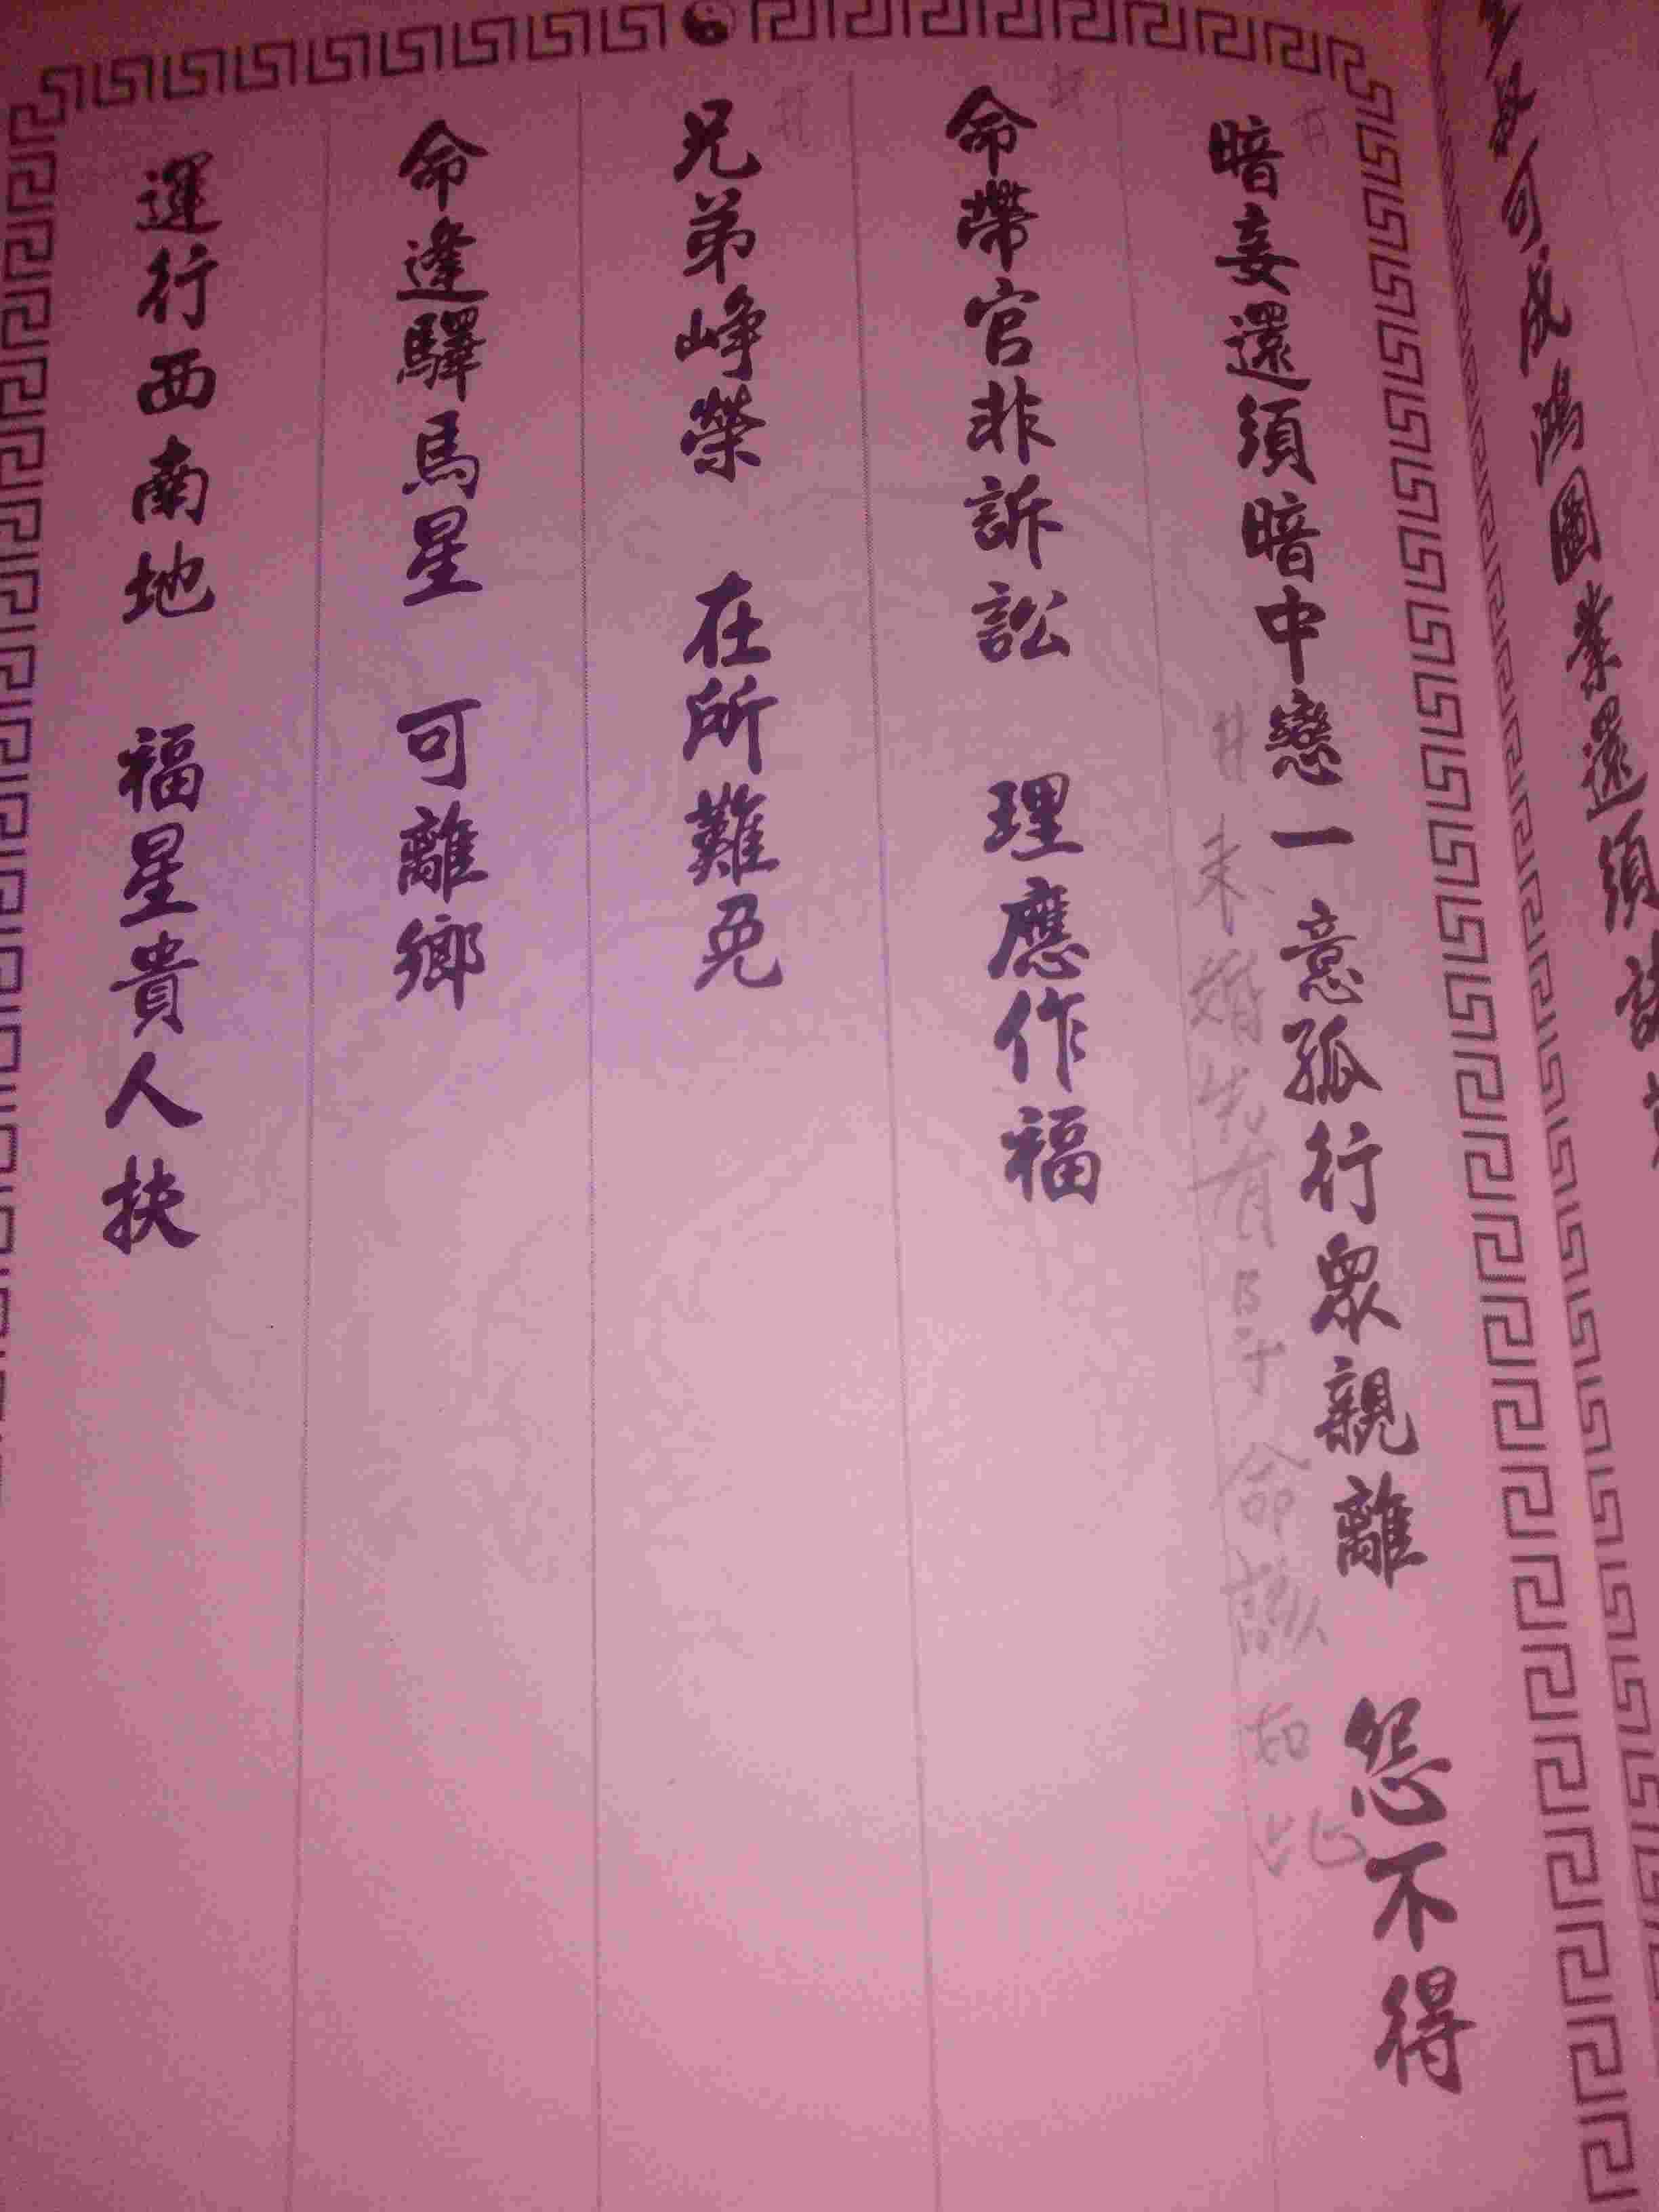 暗妾還須暗中戀一意孤行眾親離 怨不得
命帶官非訴訟 理應作福
兄弟崢榮 在所難免
命逢驛馬星 可離鄉
運行西南地 福星貴人扶
可成鴻圖業還須
未婚先有
命該如此